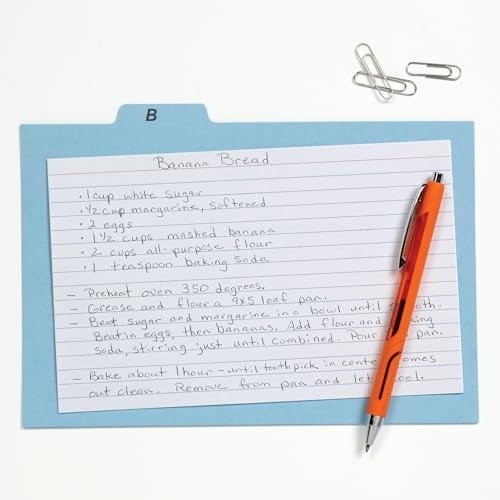 B
Banana Bread
· 1 cup white sugar
· ½ cup margarine, softened
· 2 eggs
· 1 ½ cups mashed banana
· 2 cups all-purpose flour
· 1 teaspoon baking soda
- Preheat oven 350 degrees.
- Grease and flour a 9x5 loaf pan.
- Beat sugar and margarine in a bowl until smooth.
Beat in eggs, then bananas. Add flour and baking
soda, stirring just until combined. Pour pan.
- Bake about 1 hour - until toothpick in center comes
out clean. Remove from pan and let cool.